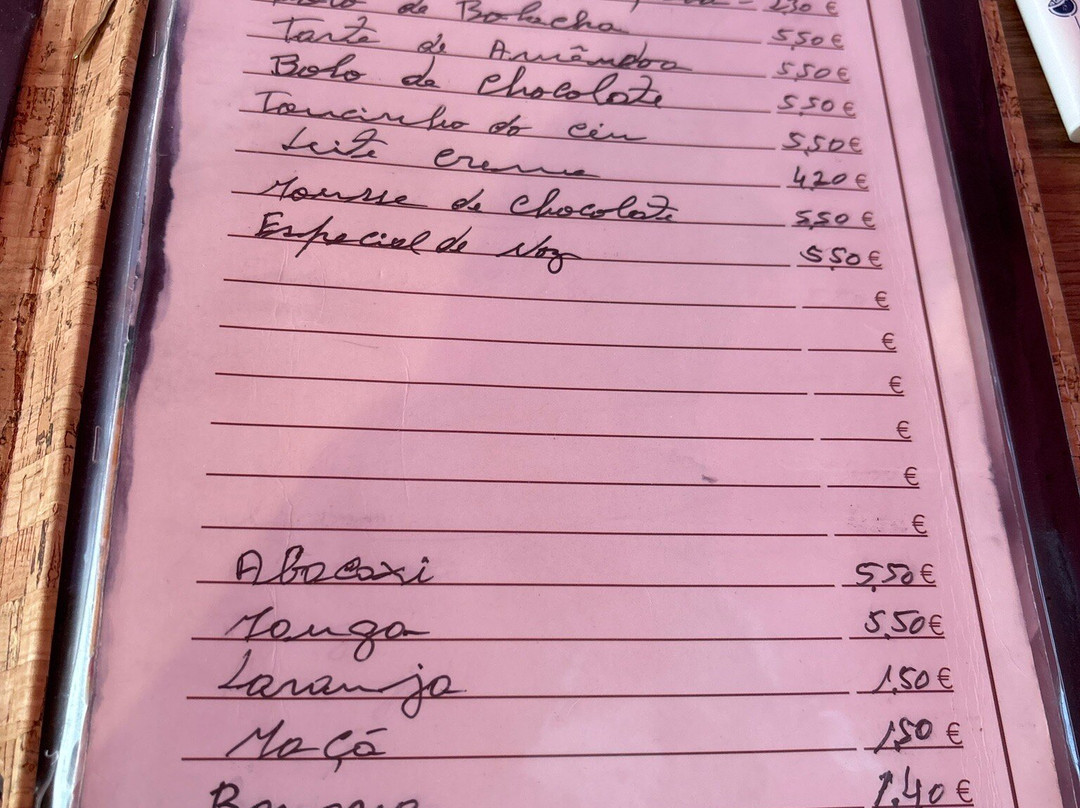 de Bolacha 5,50 €
Tarte de Amêndoa 5,50 €
Bolo de Chocolate 5,50 €
Toucinho do céu 5,50 €
Leite creme 4,20 €
Mousse de Chocolate 5,50 €
Especial de Noz 5,50 €
€
€
€
€
€
€
Abacaxi 5,50 €
Manga 5,50 €
Laranja 1,50 €
Maçã 1,50 €
1,40 €